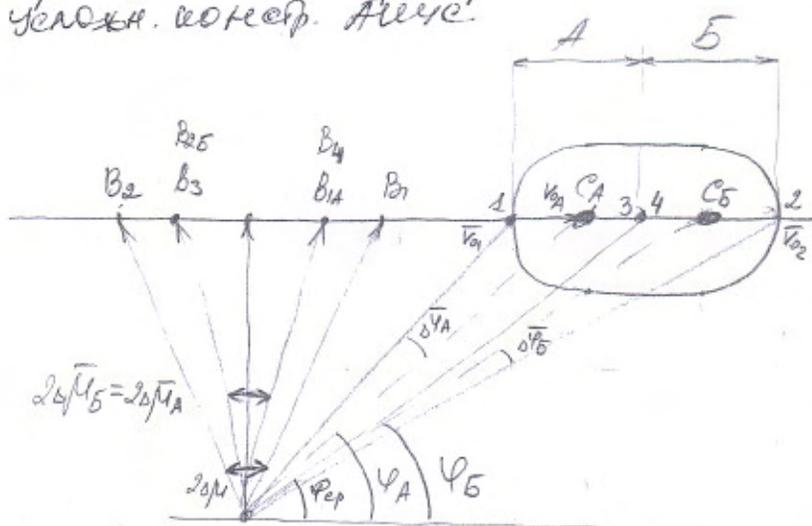 усложн. констр. АИИС.
А Б
B₂Б B₄
B₂ B₃ B₁А B₁ 1 V₀А CА 3 4 CБ 2
V̄₀₁ V̄₀₂
Δφ̄А
Δφ̄Б
2Δμ̄Б = 2Δμ̄А
2Δμ φср φА φБ